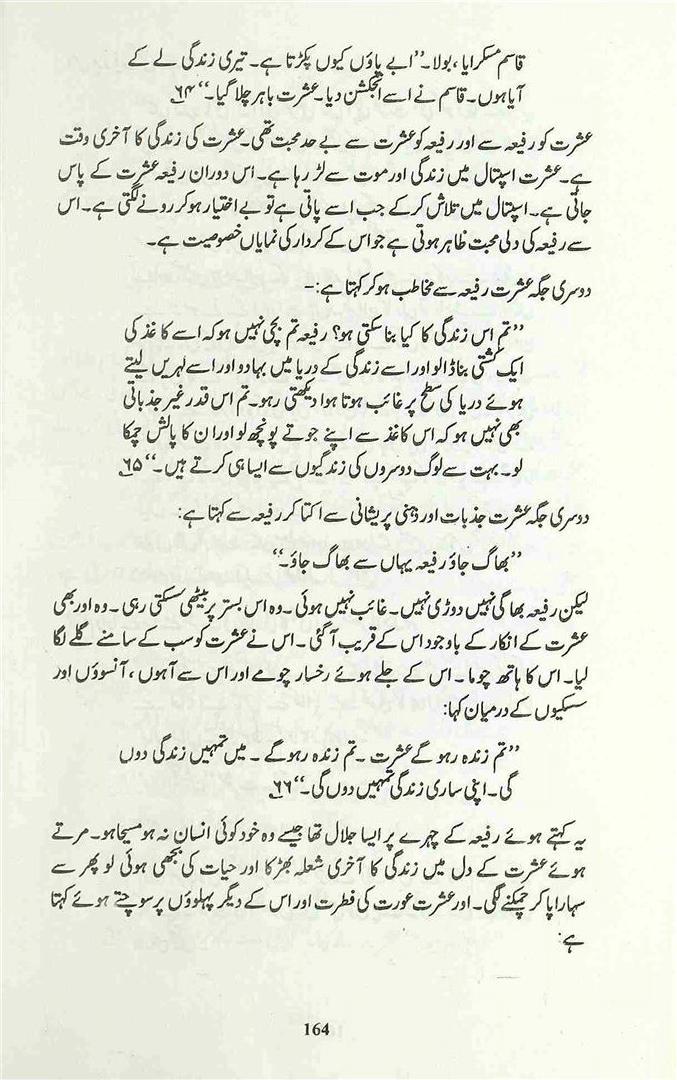 قاسم مسکرایا، بولا۔’’ابے پاؤں کیوں پکڑتا ہے۔ تیری زندگی لے کے
آیا ہوں۔ قاسم نے اسے انجکشن دیا۔ عشرت باہر چلا گیا۔‘‘ ۶۴
عشرت کو رفیعہ سے اور رفیعہ کو عشرت سے بے حد محبت تھی۔ عشرت کی زندگی کا آخری وقت
ہے۔ عشرت اسپتال میں زندگی اور موت سے لڑ رہا ہے۔ اس دوران رفیعہ عشرت کے پاس
جاتی ہے۔ اسپتال میں تلاش کرکے جب اسے پاتی ہے تو بے اختیار ہوکر رونے لگتی ہے۔ اس
سے رفیعہ کی دلی محبت ظاہر ہوتی ہے جو اس کے کردار کی نمایاں خصوصیت ہے۔
دوسری جگہ عشرت رفیعہ سے مخاطب ہوکر کہتا ہے:–
’’تم اس زندگی کا کیا بنا سکتی ہو؟ رفیعہ تم بچی نہیں ہو کہ اسے کاغذ کی
ایک کشتی بنا ڈالو اور اسے زندگی کے دریا میں بہا دو اور اسے لہریں لیتے
ہوئے دریا کی سطح پر غائب ہوتا ہوا دیکھتی رہو۔ تم اس قدر غیر جذباتی
بھی نہیں ہو کہ اس کاغذ سے اپنے جوتے پونچھ لو اور ان کا پالش چمکا
لو۔ بہت سے لوگ دوسروں کی زندگیوں سے ایسا ہی کرتے ہیں۔‘‘ ۶۵
دوسری جگہ عشرت جذبات اور ذہنی پریشانی سے اکتا کر رفیعہ سے کہتا ہے:
’’بھاگ جاؤ رفیعہ یہاں سے بھاگ جاؤ۔‘‘
لیکن رفیعہ بھاگی نہیں دوڑی نہیں۔ غائب نہیں ہوئی۔ وہ اس بستر پر بیٹھی سسکتی رہی۔ وہ اور بھی
عشرت کے انکار کے باوجود اس کے قریب آ گئی۔ اس نے عشرت کو سب کے سامنے گلے لگا
لیا۔ اس کا ہاتھ چوما۔ اس کے جلے ہوئے رخسار چومے اور اس سے آہوں، آنسوؤں اور
سسکیوں کے درمیان کہا:
’’تم زندہ رہوگے عشرت۔ تم زندہ رہوگے۔ میں تمہیں زندگی دوں
گی۔ اپنی ساری زندگی تمہیں دوں گی۔‘‘ ۶۶
یہ کہتے ہوئے رفیعہ کے چہرے پر ایسا جلال تھا جیسے وہ خود کوئی انسان نہ ہو مسیحا ہو۔ مرتے
ہوئے عشرت کے دل میں زندگی کا آخری شعلہ بھڑکا اور حیات کی بجھی ہوئی لو پھر سے
سہارا پا کر چمکنے لگی۔ اور عشرت عورت کی فطرت اور اس کے دیگر پہلوؤں پر سوچتے ہوئے کہتا
ہے:
164